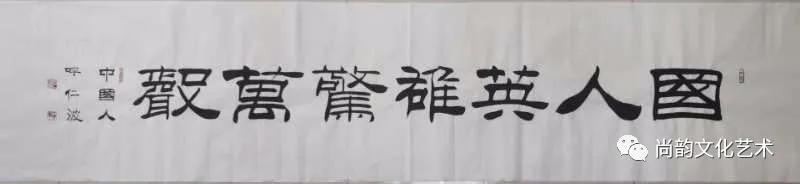 國人英雄驚萬聲
中國人
呼仁波
尚韵文化艺术